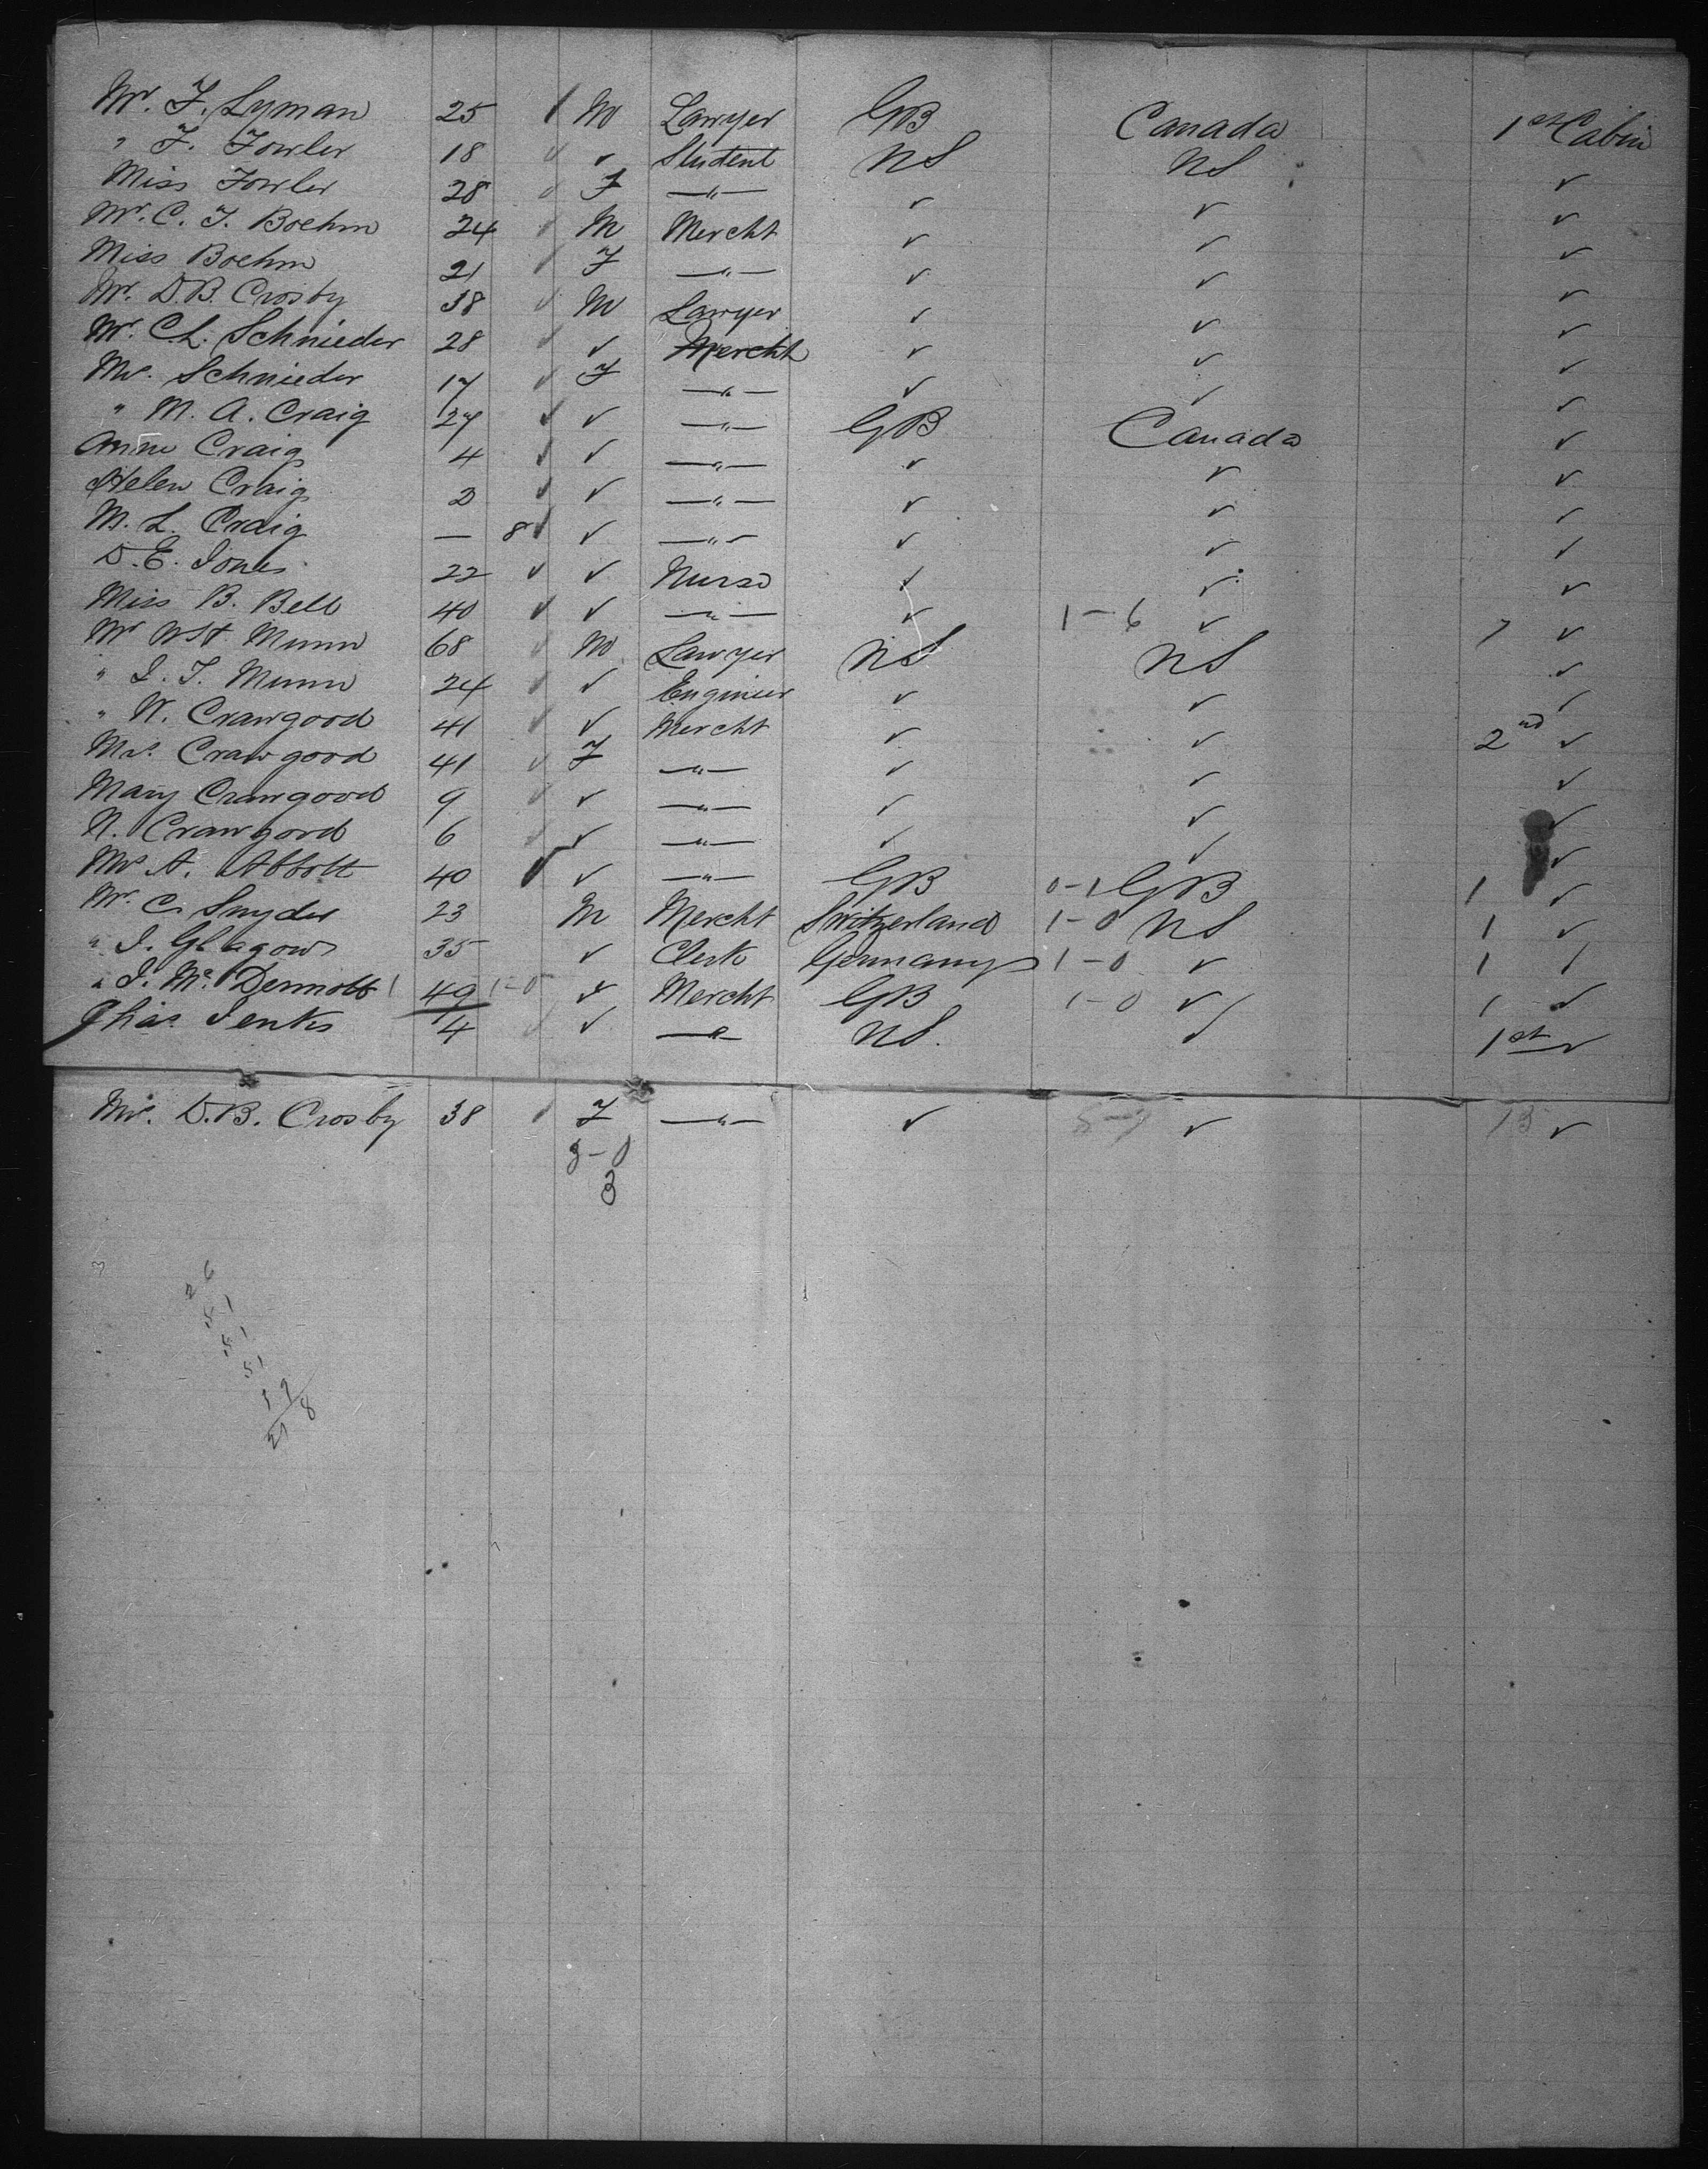 Mr. F. Lyman 25 M Lawyer GB Canada 1st Cabin
" F. Fowler 18 ✓ Student US US ✓
Miss Fowler 28 F —"— ✓ ✓ ✓
Mr. C. F. Boehm 24 M Mercht ✓ ✓ ✓
Miss Boehm 21 F —"— ✓ ✓ ✓
Mr. D.B. Crosby 38 M Lawyer ✓ ✓ ✓
Mr. C.L. Schnieder 28 ✓ Mercht ✓ ✓ ✓
Mrs. Schnieder 17 F —"— ✓ ✓ ✓
" M. A. Craig 27 ✓ —"— GB Canada ✓
Anne Craig 4 ✓ —"— ✓ ✓ ✓
Helen Craig 2 ✓ —"— ✓ ✓ ✓
M. L. Craig — 8 ✓ —"— ✓ ✓ ✓
D. E. Jones 22 ✓ Nurse ✓ ✓ ✓
Miss B. Bell 40 ✓ —"— ✓ 1-6 ✓ 7 ✓
Mr Munn 68 M Lawyer US US ✓
" I. T. Munn 24 ✓ Engineer ✓ ✓ ✓
" W. Crawgood 41 ✓ Mercht ✓ ✓ 2nd ✓
Mrs. Crawgood 41 F —"— ✓ ✓ ✓
Mary Crawgood 9 ✓ —"— ✓ ✓ ✓
N. Crawgood 6 ✓ —"— ✓ ✓ ✓
Mrs A. Abbott 40 ✓ —"— GB 0-1 GB 1 ✓
Mr. C. Snyder 23 M Mercht Switzerland 1-0 US 1 ✓
" I. Glagow 35 ✓ Clerk Germany 1-0 ✓ 1 ✓
" J. McDermott 1 49 1-0 ✓ Mercht GB 1-0 ✓ 1 ✓
Chas Jenks 4 ✓ —"— US. ✓ 1st ✓
Mrs. D.B. Crosby 38 F —"— ✓ ✓ 13 ✓
3